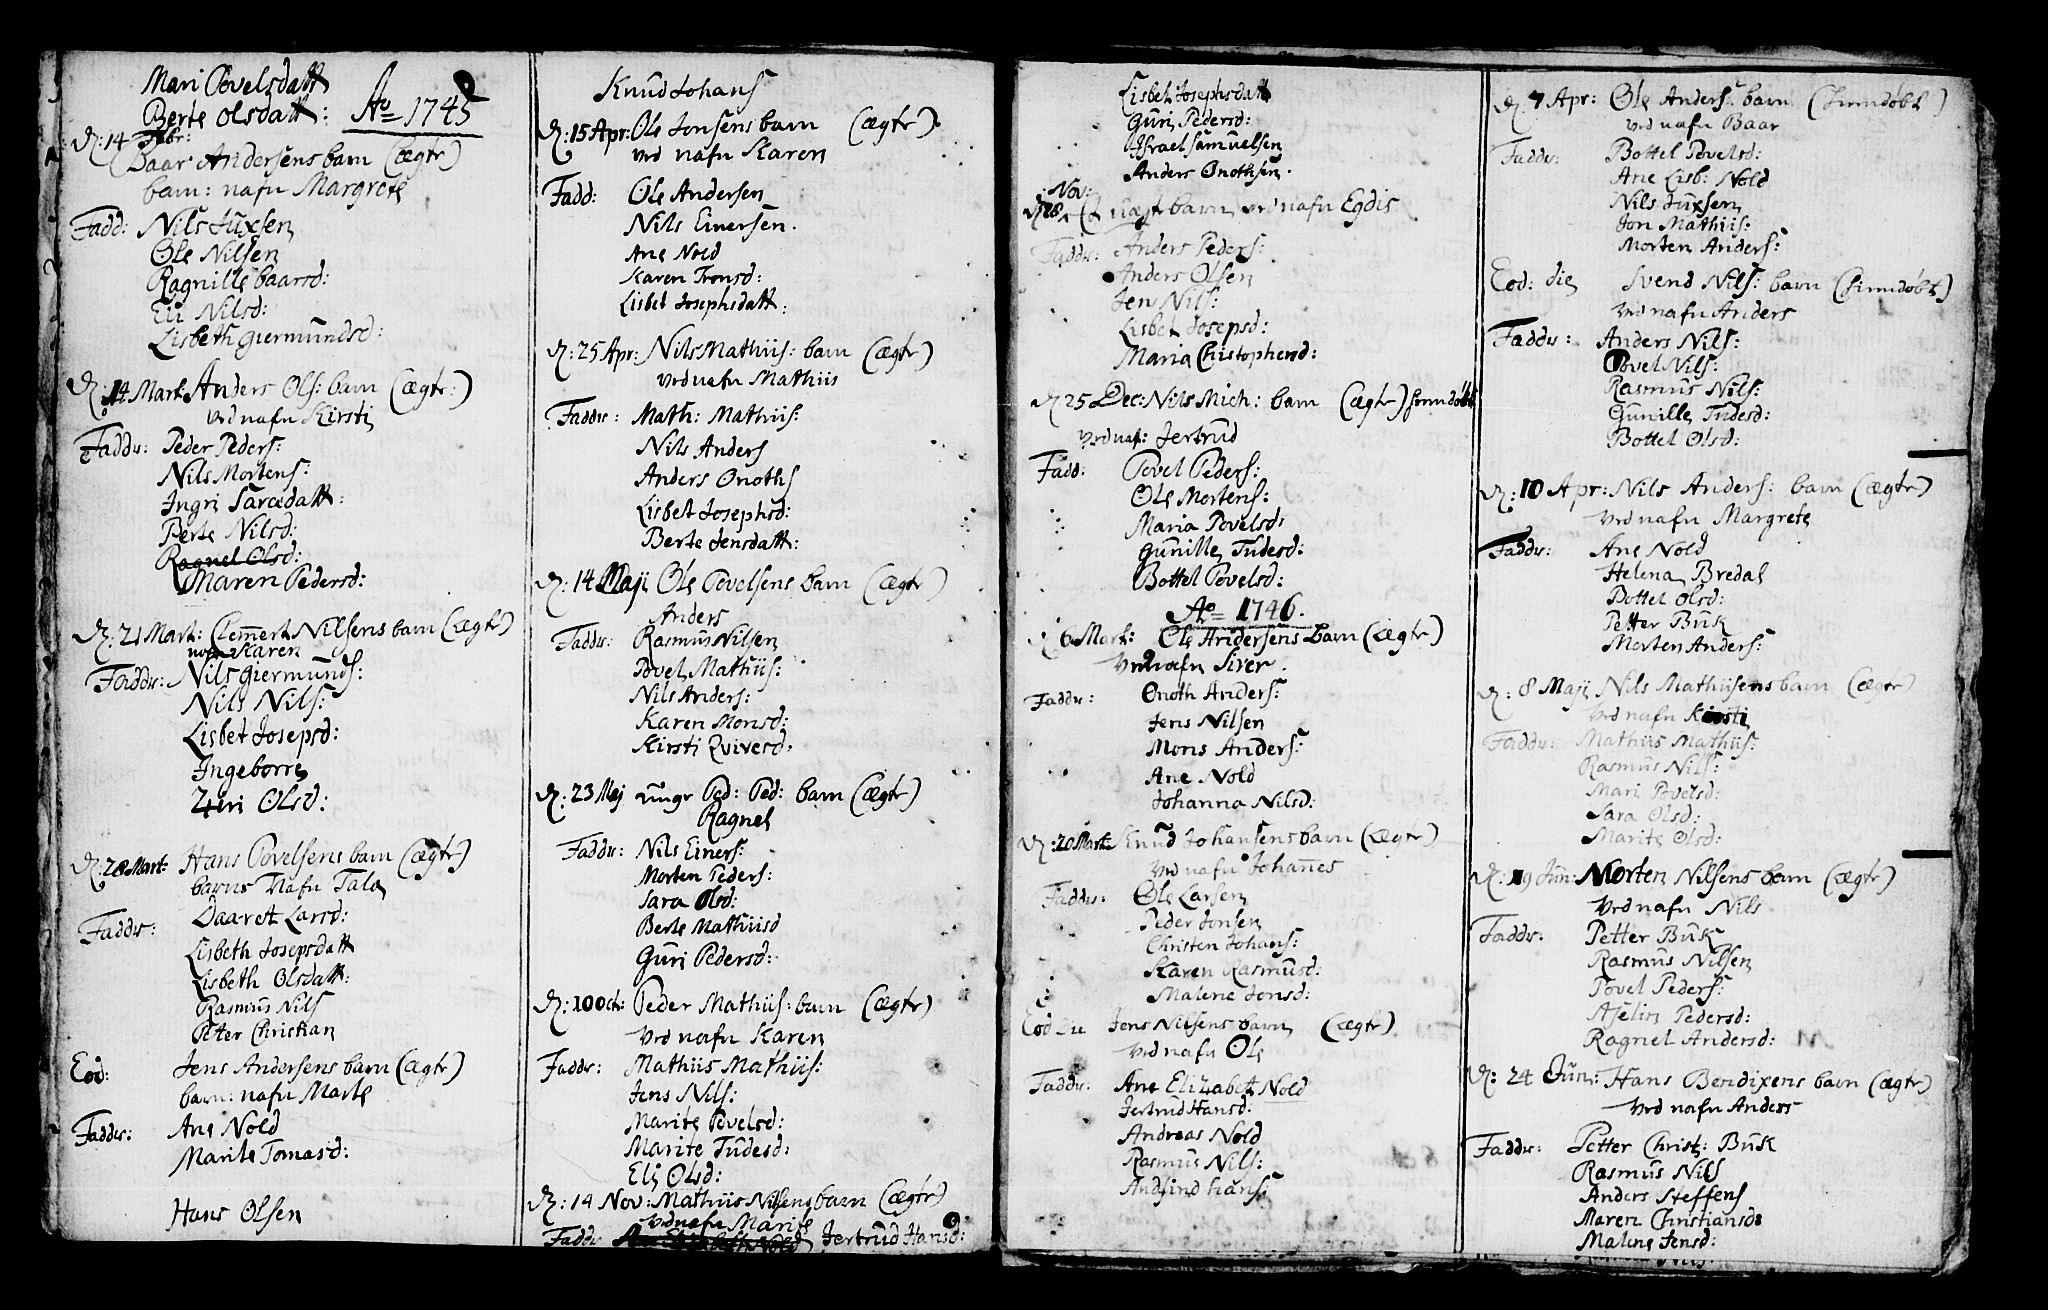 Mari Povelsdatt
Berte Olsdatt: Ao 1745
D: 14 Febr:
Baar Andersens barn (ægtr)
barn: nafn Margrete
Fadd: Nils Juxsen
Ole Nilsen
Ragnille baarsd:
Eli Nilsd:
Lisbeth giermundsd:
D: 14 Mart: Anders Ols: barn (ægtr:)
ved nafn Kirsti
Faddr: Peder Peders:
Nils Mortens:
Ingri Saræadatt:
Berte Nilsd:
Ragnel Olsd:
Maren Pedersd:
D: 21 Mart: Clemmet Nilsens barn (ægtr)
nafn Karen
Faddr: Nils giermunds:
Nils Nils:
Lisbet Josepsd:
Ingeborre
Olsd:
D: 28 Mart: Hans Povelsens barn (ægtr)
barns Nafn Tale
Faddr: Daaret Larsd:
Lisbeth Josepsdatt
Lisbeth Olsdatt:
Rasmus Nils
Peter Christian
Eod: Jens Andersens barn (ægtr)
barn: nafn Marte
Faddr: Ane Nold
Marite Tomasd:
Hans Olsen
Knud Johans
D: 15 Apr: Ole Jonsens barn (ægtr)
ved nafn Karen
Fadd: Ole Andersen
Nils Einersen.
Ane Nold
Karen Tronsd:
Lisbet Josephsdatt:
D: 25 Apr: Nils Mathiis: barn (ægtr)
ved nafn Mathiis
Faddr: Math: Mathiis:
Nils Anders
Anders Onoths
Lisbet Josephsd:
Berte Jensdatt:
D: 14 Maji Ole Povelsens barn (ægtr)
Anders
Faddr: Rasmus Nilsen
Povel Mathiis:
Nils Anders:
Karen Monsd:
Kirsti Qvivesd:
D: 23 Mej unge Ped: Ped: barn (ægtr)
Ragnel
Faddr: Nils Einers:
Morten Peders:
Sara Olsd:
Berte Mathiisd
Guri Pedersd:
D: 10 Oct: Peder Mathiis: barn (ægtr)
ved nafn Karen
Faddr: Mathiis Mathiis:
Jens Nils:
Marite Povelsd:
Marite Tudesd:
Eli Olsd:
D: 14 Nov: Mathiis Nilsens barn (ægtr)
ved nafn Marite
Faddr Jertrud Hansd:
Lisbet Josephsdatt
Guri Pedersd:
Israel Samuelsen
Anders Onothsen.
Nov:
D: 28 Et uægt barn, ved nafn Egdis
Faddr: Anders Peders:
Anders Olsen
Jen Nils:
Lisbet Josepsd:
Maria Christophersd:
D: 25 Dec: Nils Mich: barn (ægtr) hiemdøbt
ved naf: Jertrud
Fadd: Povel Peders:
Ole Mortens:
Maria Povelsd:
Gunille Tudesd:
Bottel Povelsd:
Ao 1746.
D: 6 Mart: Ole Andersens barn (ægtr)
ved nafn Siver.
Faddr: Onoth Anders:
Jens Nilsen
Mons Anders:
Ane Nold
Johanna Nilsd:
D: 20 Mart: Knud Johansens barn (ægtr)
ved nafn Johannes
Faddr: Ole Larsen
Peder Jonsen
Christen Johans:
Karen Rasmusd:
Malene Jonsd:
Eod die Jens Nilsens barn (ægtr)
ved nafn Ole
Faddr: Ane Elizabett Nold
Jertrud Hansd:
Andreas Nold
Rasmus Nils:
Andfind hans:
D: 7 Apr: Ole Anders: barn (hiemdøbt)
ved nafn Baar
Faddr: Bottel Povelsd:
Ane Lisb: Nold
Nils Juxsen
Jon Mathiis:
Morten Anders:
Eod: die Svend Nils: barn (hiemdøbt)
ved nafn Anders
Faddr: Anders Nils:
Povel Nils:
Rasmus Nils:
Gunille Tudesd:
Bottel Olsd:
D: 10 Apr: Nils Anders: barn (ægtr)
ved nafn Margrete
Faddr: Ane Nold
Helena Bredal
Bottel Olsd:
Petter Buk
Morten Anders:
D: 8 Maji Nils Mathiisens barn (ægtr)
ved nafn Kirsti
Faddr: Mathiis Mathiis:
Rasmus Nils:
Mari Povelsd:
Sara Olsd:
Marite Olsd:
D: 19 Jun: Morten Nilsens barn (ægtr)
ved nafn Nils
Faddr: Petter Buk
Rasmus Nilsen
Povel Peders:
Aselin Pedersd:
Ragnel Andersd:
D: 24 Jun: Hans Bendixens barn (ægtr)
ved nafn Anders
Faddr: Petter Christ: Buk
Rasmus Nils
Anders Steffens
Maren Christiansd:
Malene Jensd: